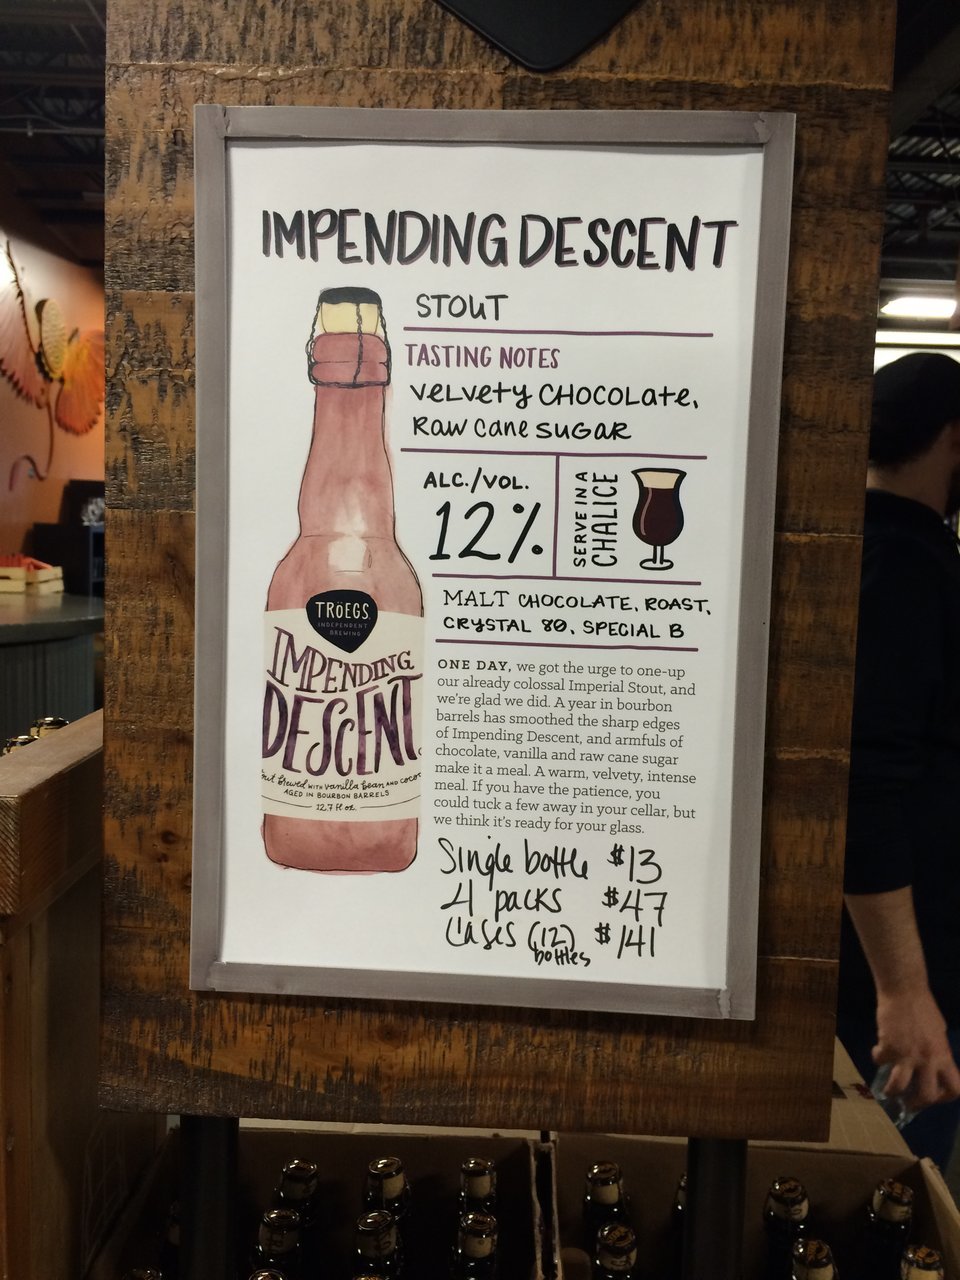 IMPENDING DESCENT
STOUT
TASTING NOTES
VELVETY CHOCOLATE,
RAW CANE SUGAR
ALC./VOL.
12%
SERVE IN A
CHALICE
MALT CHOCOLATE, ROAST,
CRYSTAL 80, SPECIAL B
ONE DAY, we got the urge to one-up
our already colossal Imperial Stout, and
we're glad we did. A year in bourbon
barrels has smoothed the sharp edges
of Impending Descent, and armfuls of
chocolate, vanilla and raw cane sugar
make it a meal. A warm, velvety, intense
meal. If you have the patience, you
could tuck a few away in your cellar, but
we think it's ready for your glass.
Single bottle $13
4 packs $47
Cases (12) $141
bottles
TRöEGS
INDEPENDENT
BREWING
IMPENDING
DESCENT
brewed with vanilla bean and
AGED IN BOURBON BARRELS
12.7 fl oz.